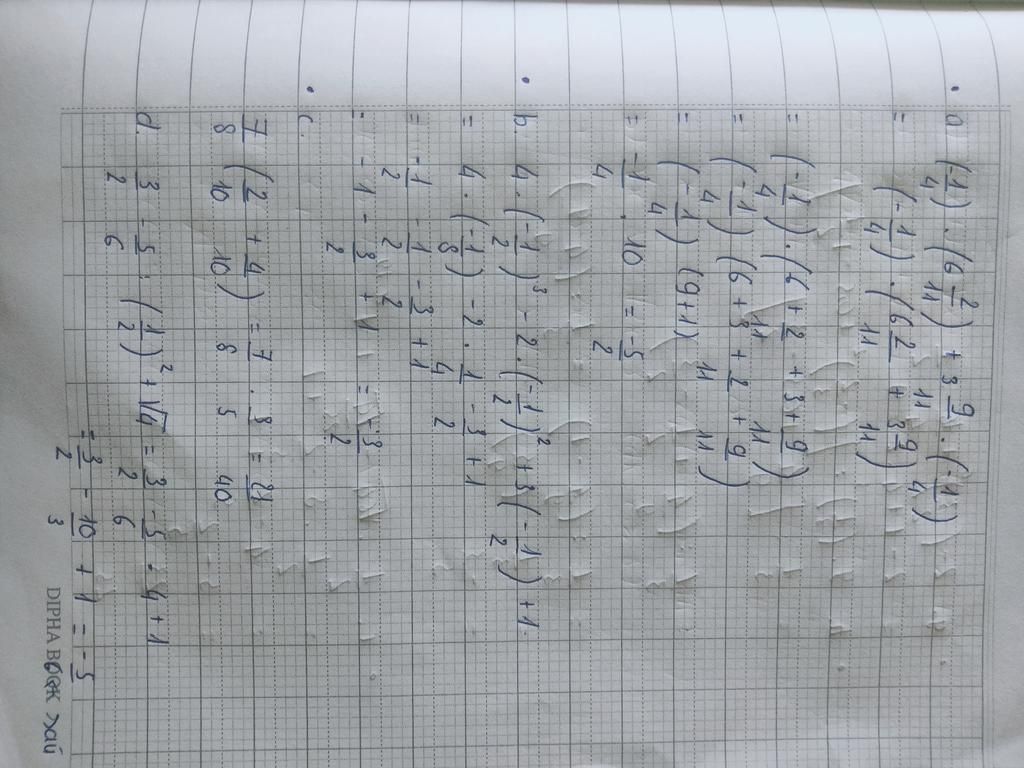 a) (-1/4) . (6 2/11) + 3 9/11 . (-1/4)
= (-1/4) . (6 2/11 + 3 9/11)
= (-1/4) . (6 + 2/11 + 3 + 9/11)
= (-1/4) (6 + 3 + 2/11 + 9/11)
= (-1/4) (9+1)
= -1/4 . 10 = -5/2
b. 4 . (-1/2)³ - 2 . (-1/2)² + 3 (-1/2) + 1
= 4 . (-1/8) - 2 . 1/4 - 3/2 + 1
= -1/2 - 1/2 - 3/2 + 1
= - 1 - 3/2 + 1 = -3/2
c.
7/8 (2/10 + 4/10) = 7/8 . 3/5 = 21/40
d. 3/2 - 5/6 : (1/2)² + √4 = 3/2 - 5/6 . 4 + 1
= 3/2 - 10/3 + 1 = - 5/6
DIPHA BOOK